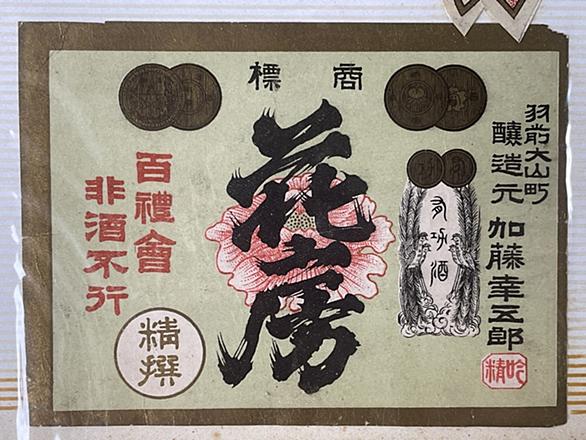 商標
羽前大山町
釀造元 加藤幸五郎
吟精
有功酒
花房
百禮會
非酒不行
精撰